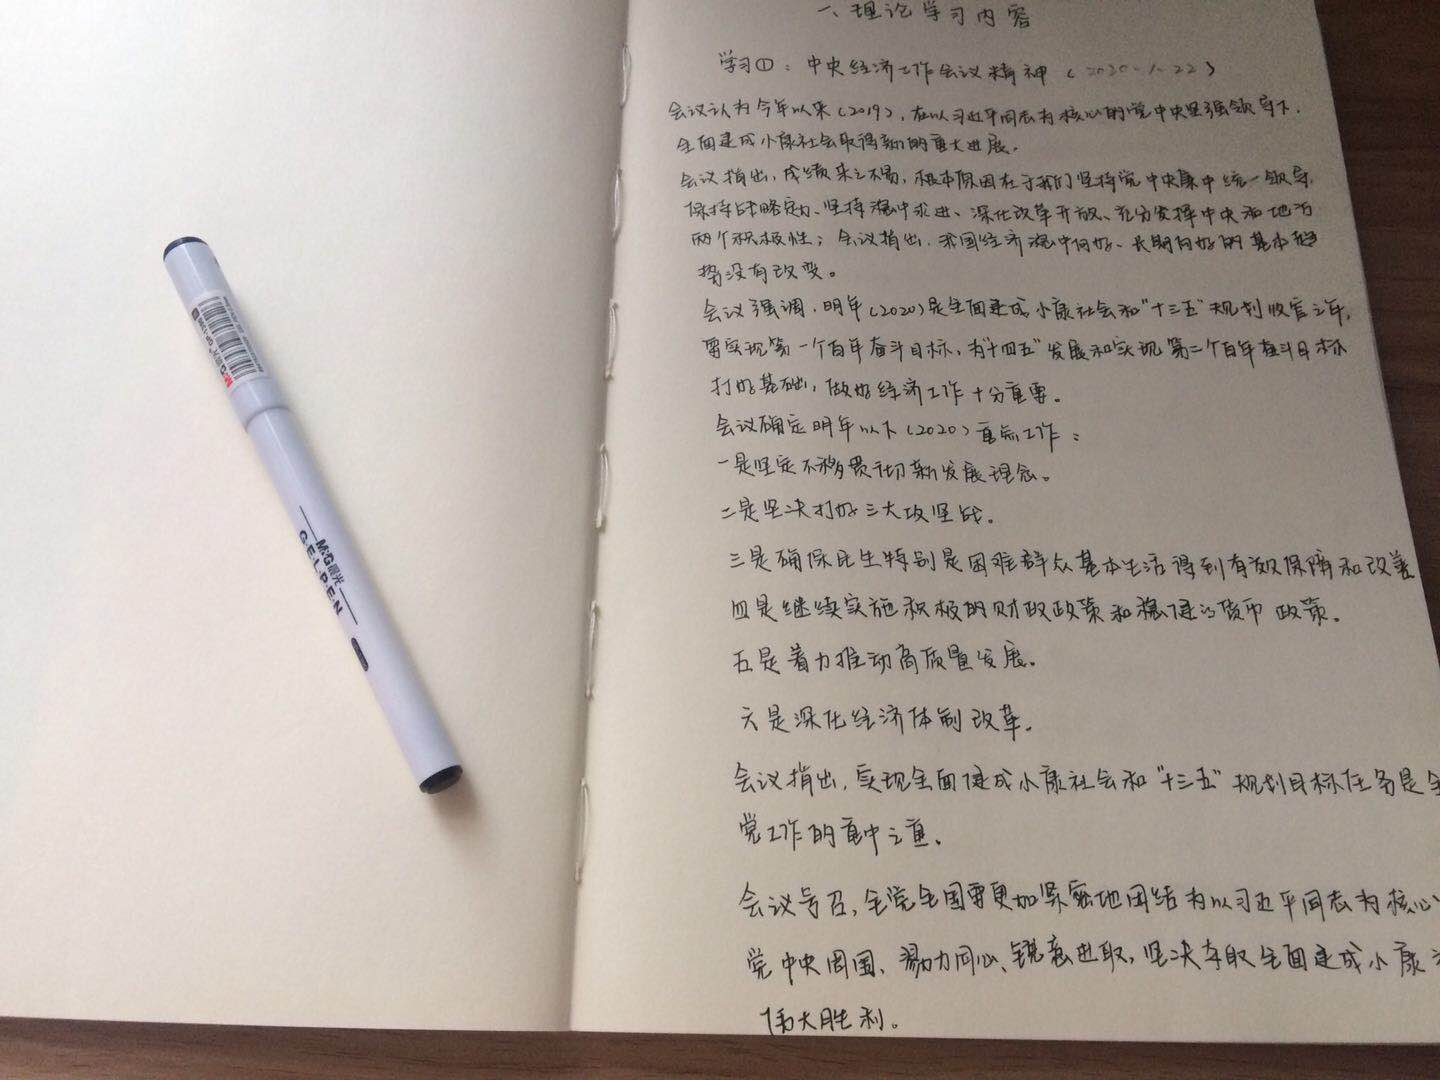 一、理论学习内容
学习①：中央经济工作会议精神（2020.1.22）
会议认为今年以来（2019），在以习近平同志为核心的党中央坚强领导下，
全面建成小康社会取得新的重大进展。
会议指出，成绩来之不易，根本原因在于我们坚持党中央集中统一领导，
保持战略定力、坚持稳中求进、深化改革开放、充分发挥中央和地方
两个积极性；会议指出，我国经济稳中向好、长期向好的基本趋
势没有改变。
会议强调，明年（2020）是全面建成小康社会和“十三五”规划收官之年，
要实现第一个百年奋斗目标，为“十四五”发展和实现第二个百年奋斗目标
打好基础，做好经济工作十分重要。
会议确定明年以下（2020）重点工作：
一是坚定不移贯彻新发展理念。
二是坚决打好三大攻坚战。
三是确保民生特别是困难群众基本生活得到有效保障和改善
四是继续实施积极的财政政策和稳健的货币政策。
五是着力推动高质量发展。
六是深化经济体制改革。
会议指出，实现全面建成小康社会和“十三五”规划目标任务是全
党工作的重中之重。
会议号召，全党全国要更加紧密地团结在以习近平同志为核心
党中央周围、勠力同心、锐意进取，坚决夺取全面建成小康
伟大胜利。
M&G晨光
GEL PEN